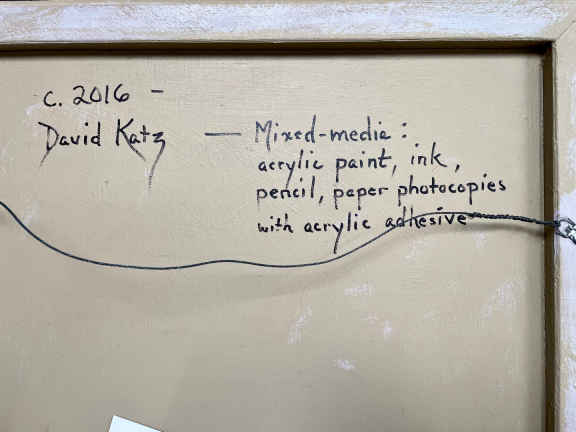 c. 2016 –
David Katz — Mixed-media:
acrylic paint, ink,
pencil, paper photocopies
with acrylic adhesive